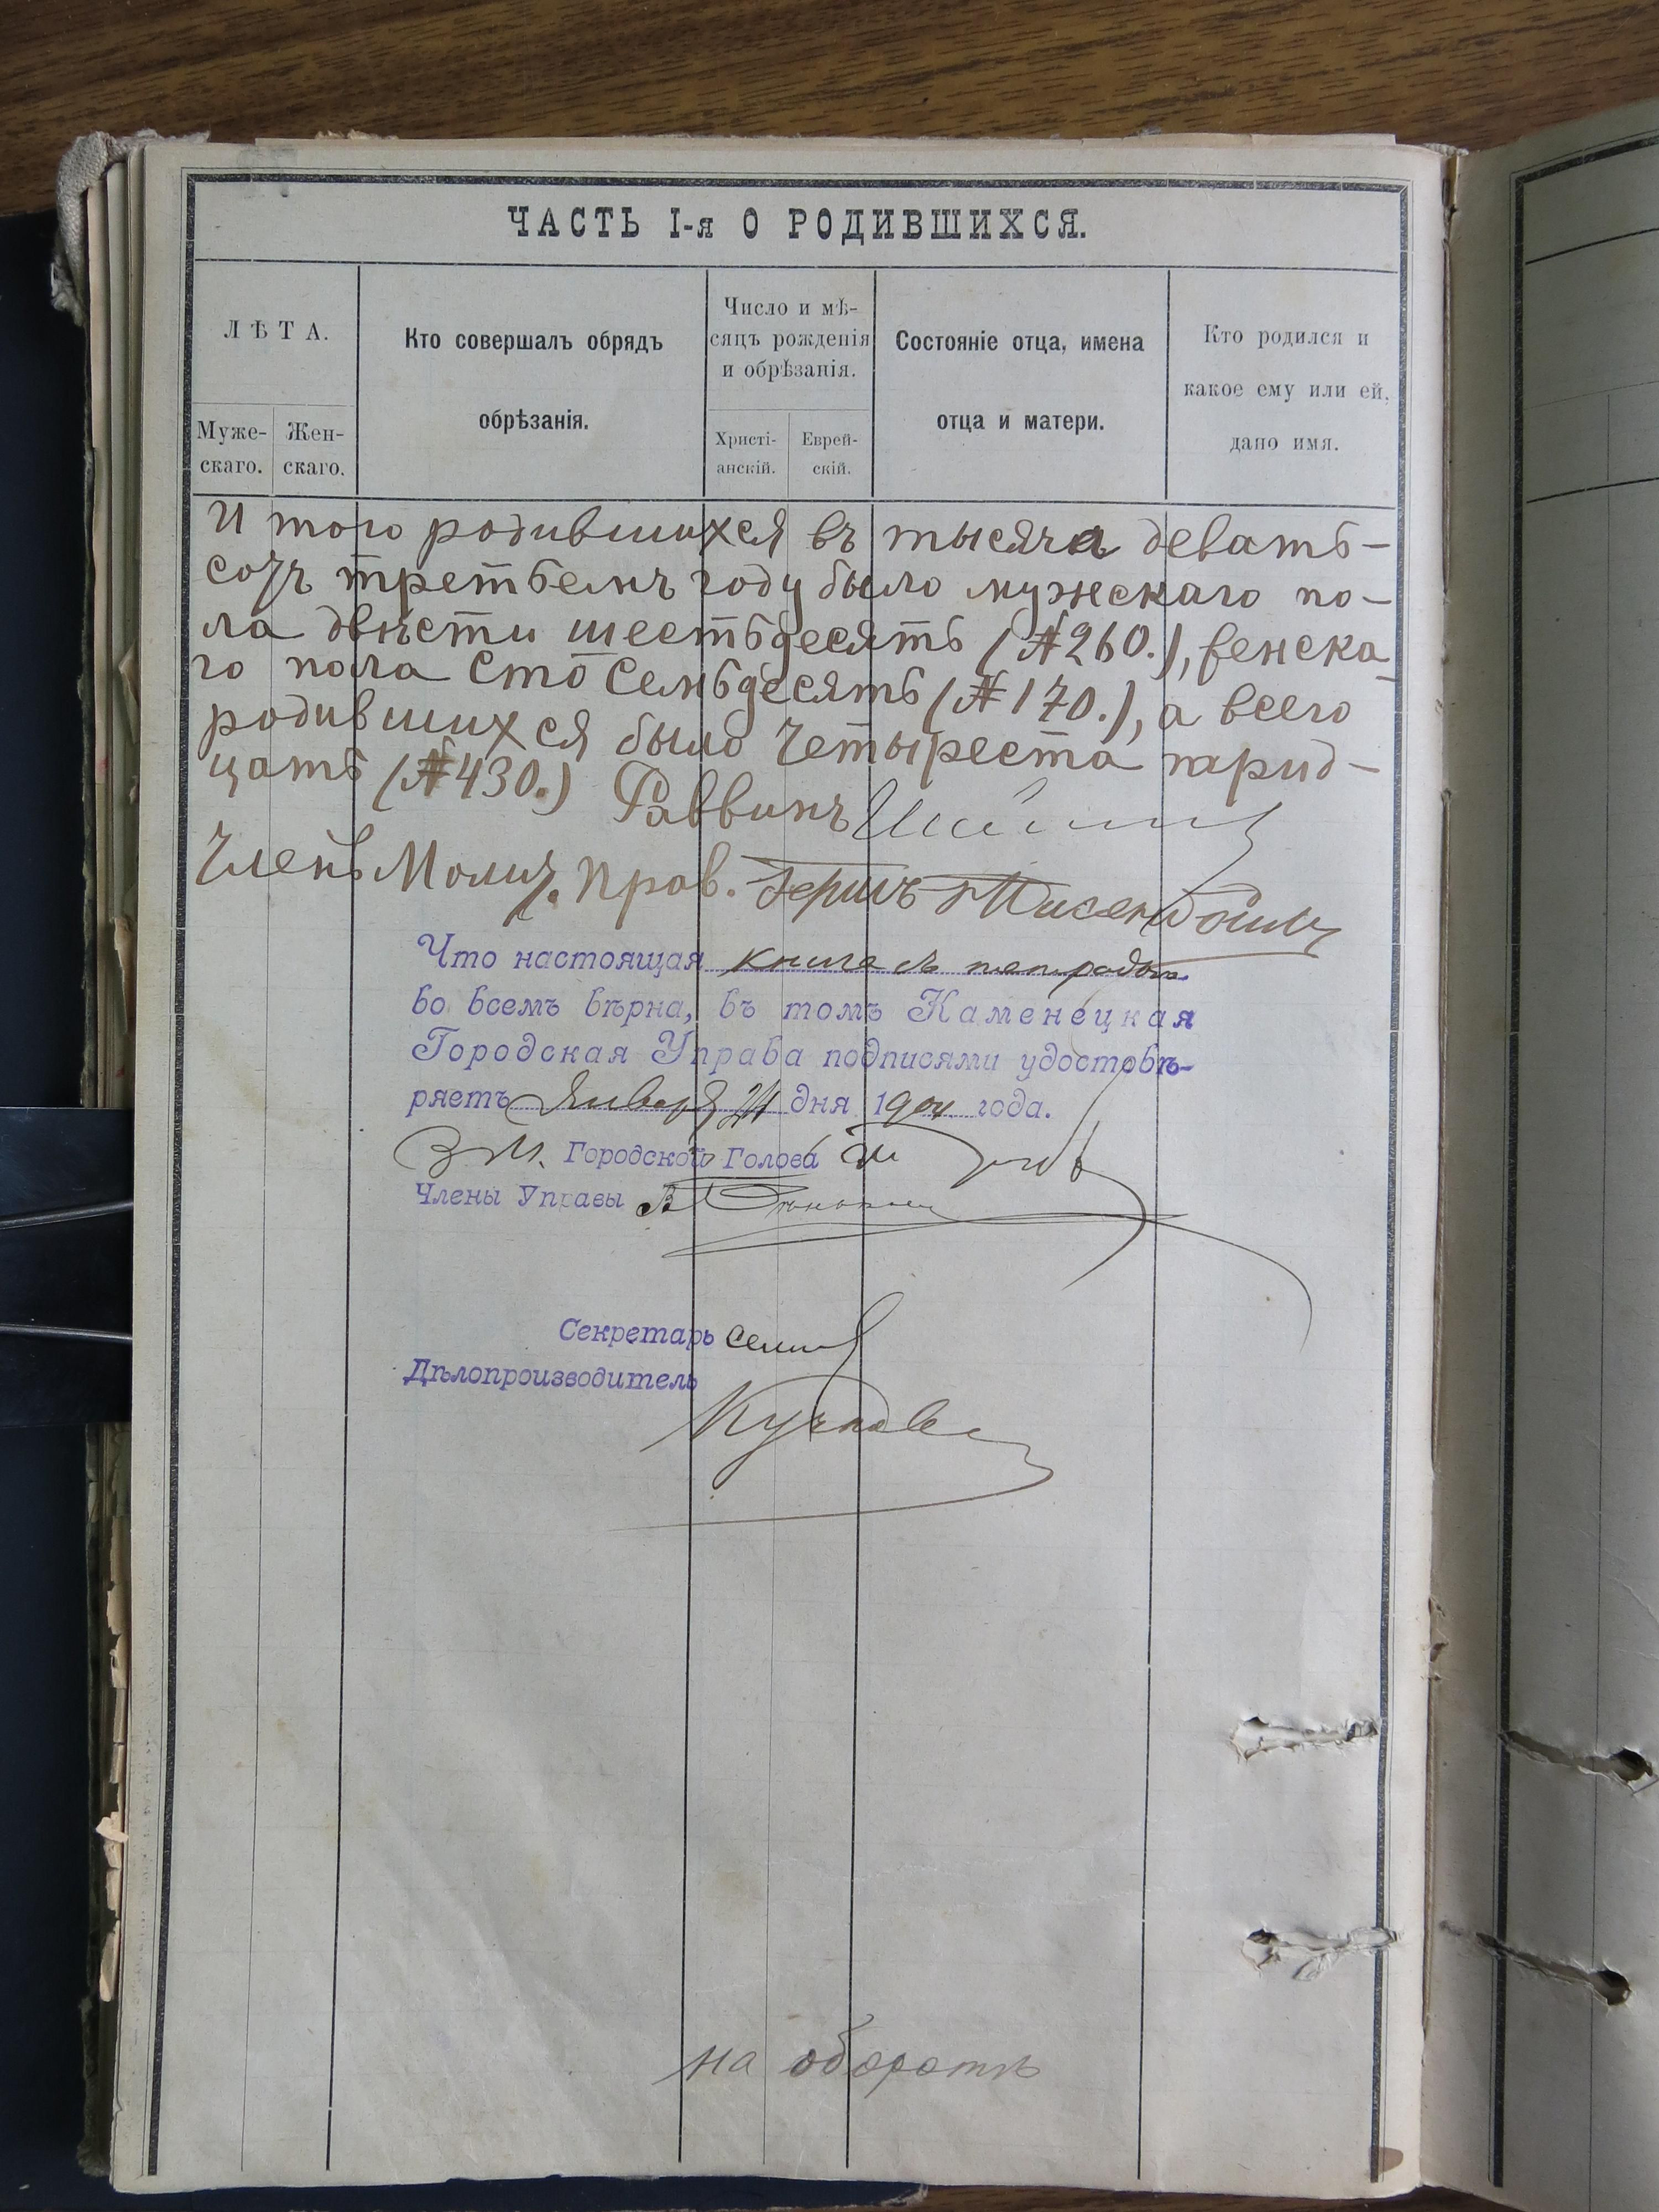 ЧАСТЬ I-я О РОДИВШИХСЯ.
ЛѢТА.
Муже-
скаго.
Жен-
скаго.
Кто совершалъ обрядъ
обрѣзанія.
Число и мѣ-
сяцъ рожденія
и обрѣзанія.
Христі-
анскій.
Еврей-
скій.
Состояніе отца, имена
отца и матери.
Кто родился и
какое ему или ей,
дано имя.
И того родившихся въ тысяча девать-
сотъ третьемъ году было мужескаго по-
ла двѣсти шестьдесять (№260.), женска
го пола сто семьдесять (№170.), а всего
родившихся было четыреста трид-
цать (№430.) Раввинъ
Членъ Молит. Прав. Гершъ
Что настоящая книга
во всемъ вѣрна, въ томъ Каменецкая
Городская Управа подписями удостовѣ-
ряетъ Января 24 дня 1904 года.
З. М. Городской Голова
Члены Управы
Секретарь
Дѣлопроизводитель
на оборотѣ